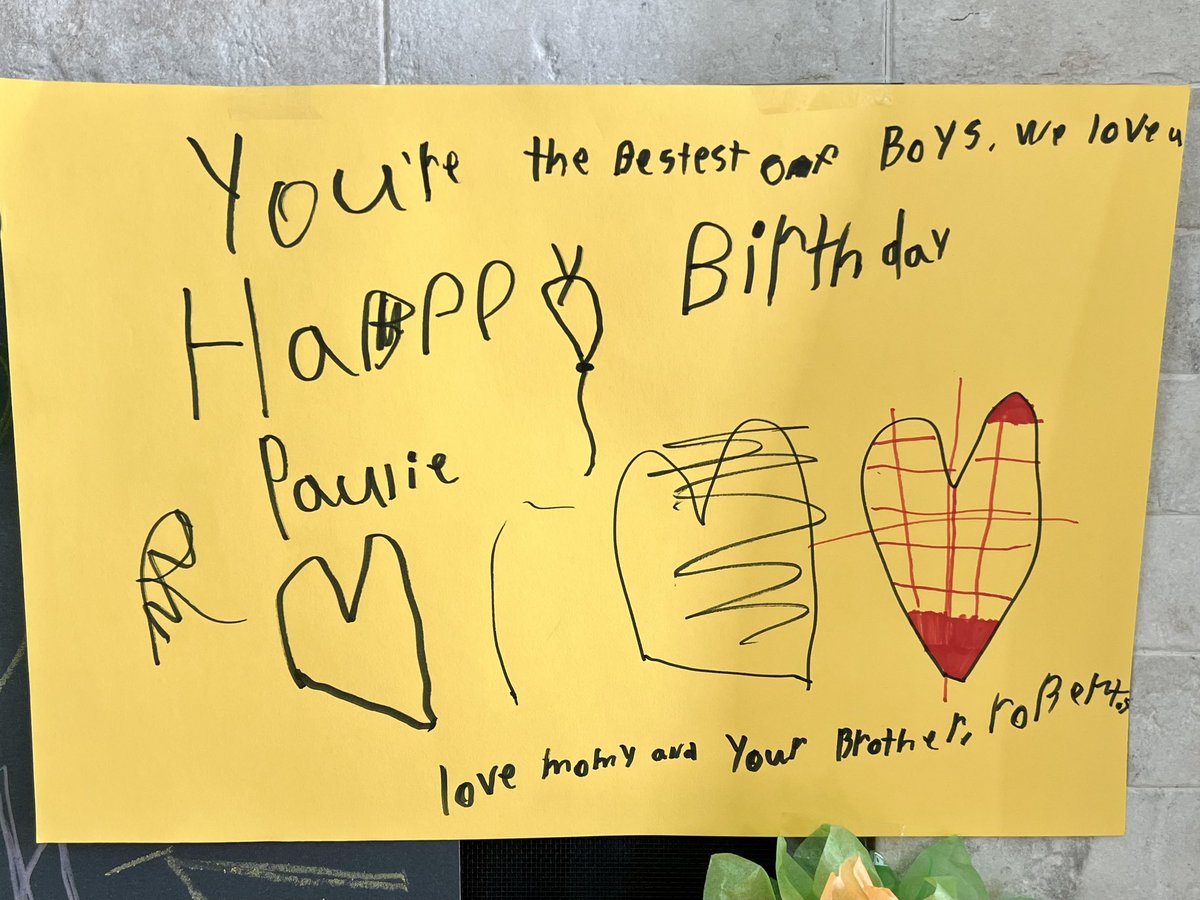 You're the Bestest of Boys. We love u
Happy Birthday
Paulie
love momy and Your Brother, roBerto